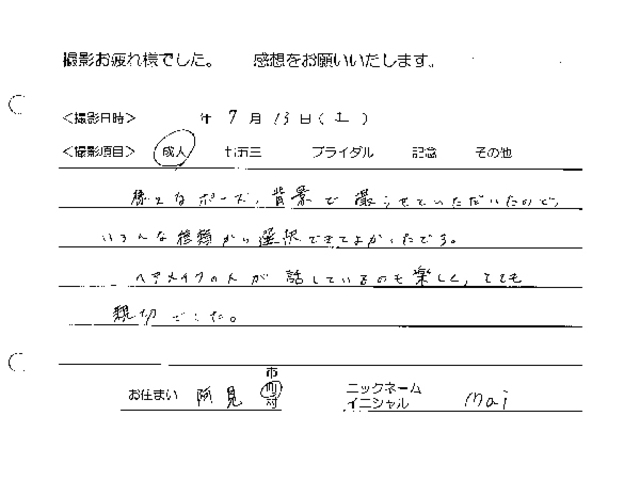 撮影お疲れ様でした。 感想をお願いいたします。
<撮影日時> 年 7月 13日(土)
<撮影項目> 成人 七五三 ブライダル 記念 その他
様々なポーズ、背景で撮らせていただいたので、
いろんな種類から選択できてよかったです。
ヘアメイクの人が話しているのも楽しく、とても
親切でした。
市
お住まい 阿見 町 ニックネーム
村 イニシャル Mai